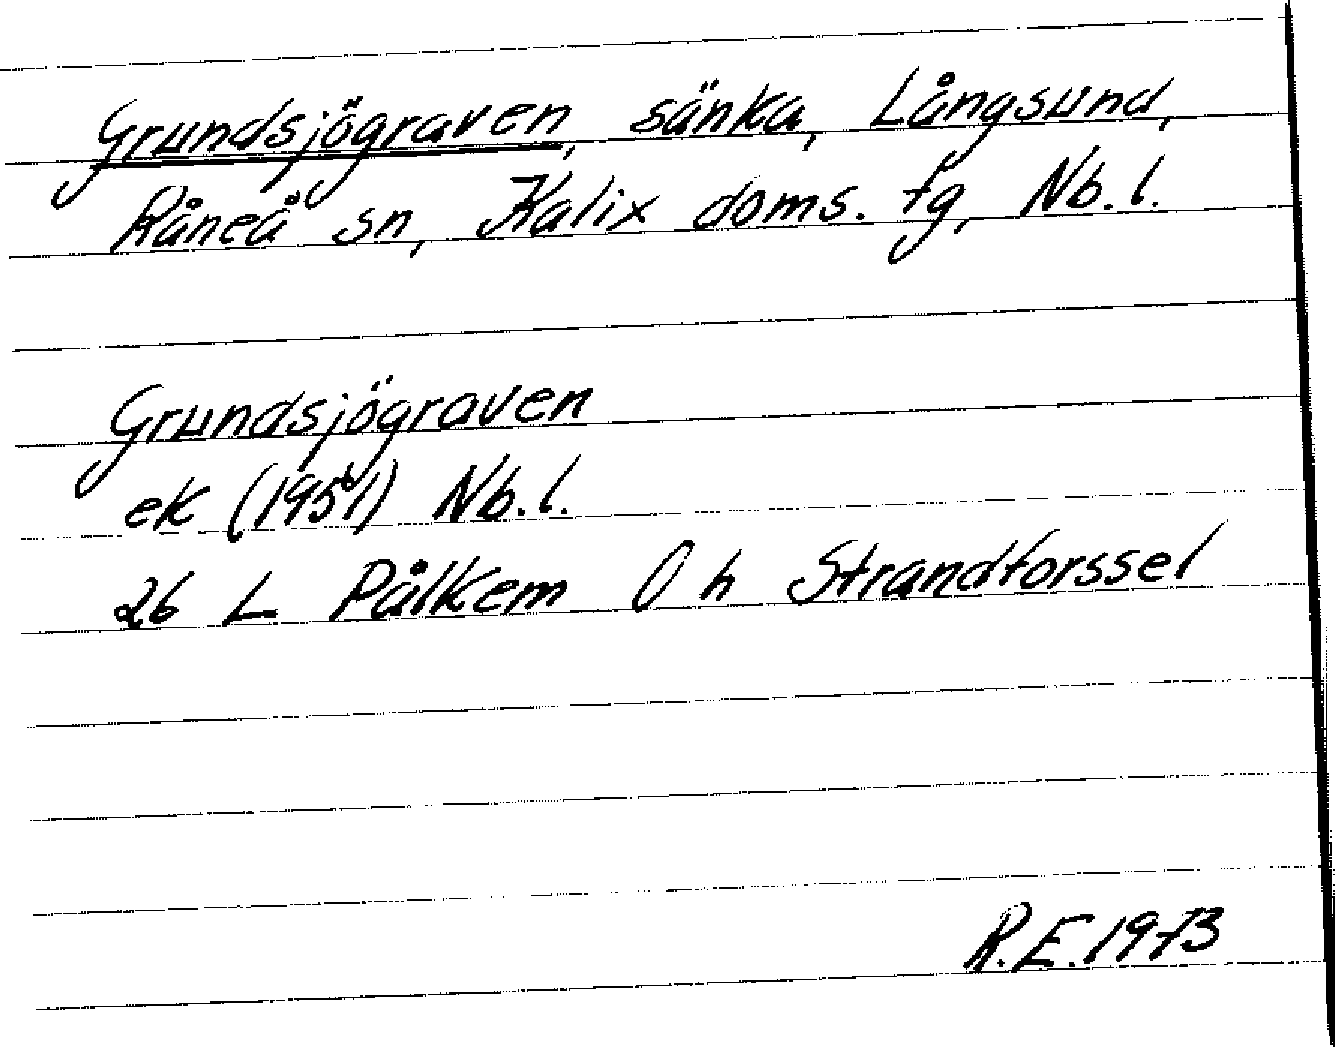 Grundsjögraven, sänka, Långsund,
Råneå sn, Kalix doms. tg, Nb. l.
Grundsjögraven
ek (1951) Nb. l.
26 L Pålkem O h Strandforssel
R.E. 1973